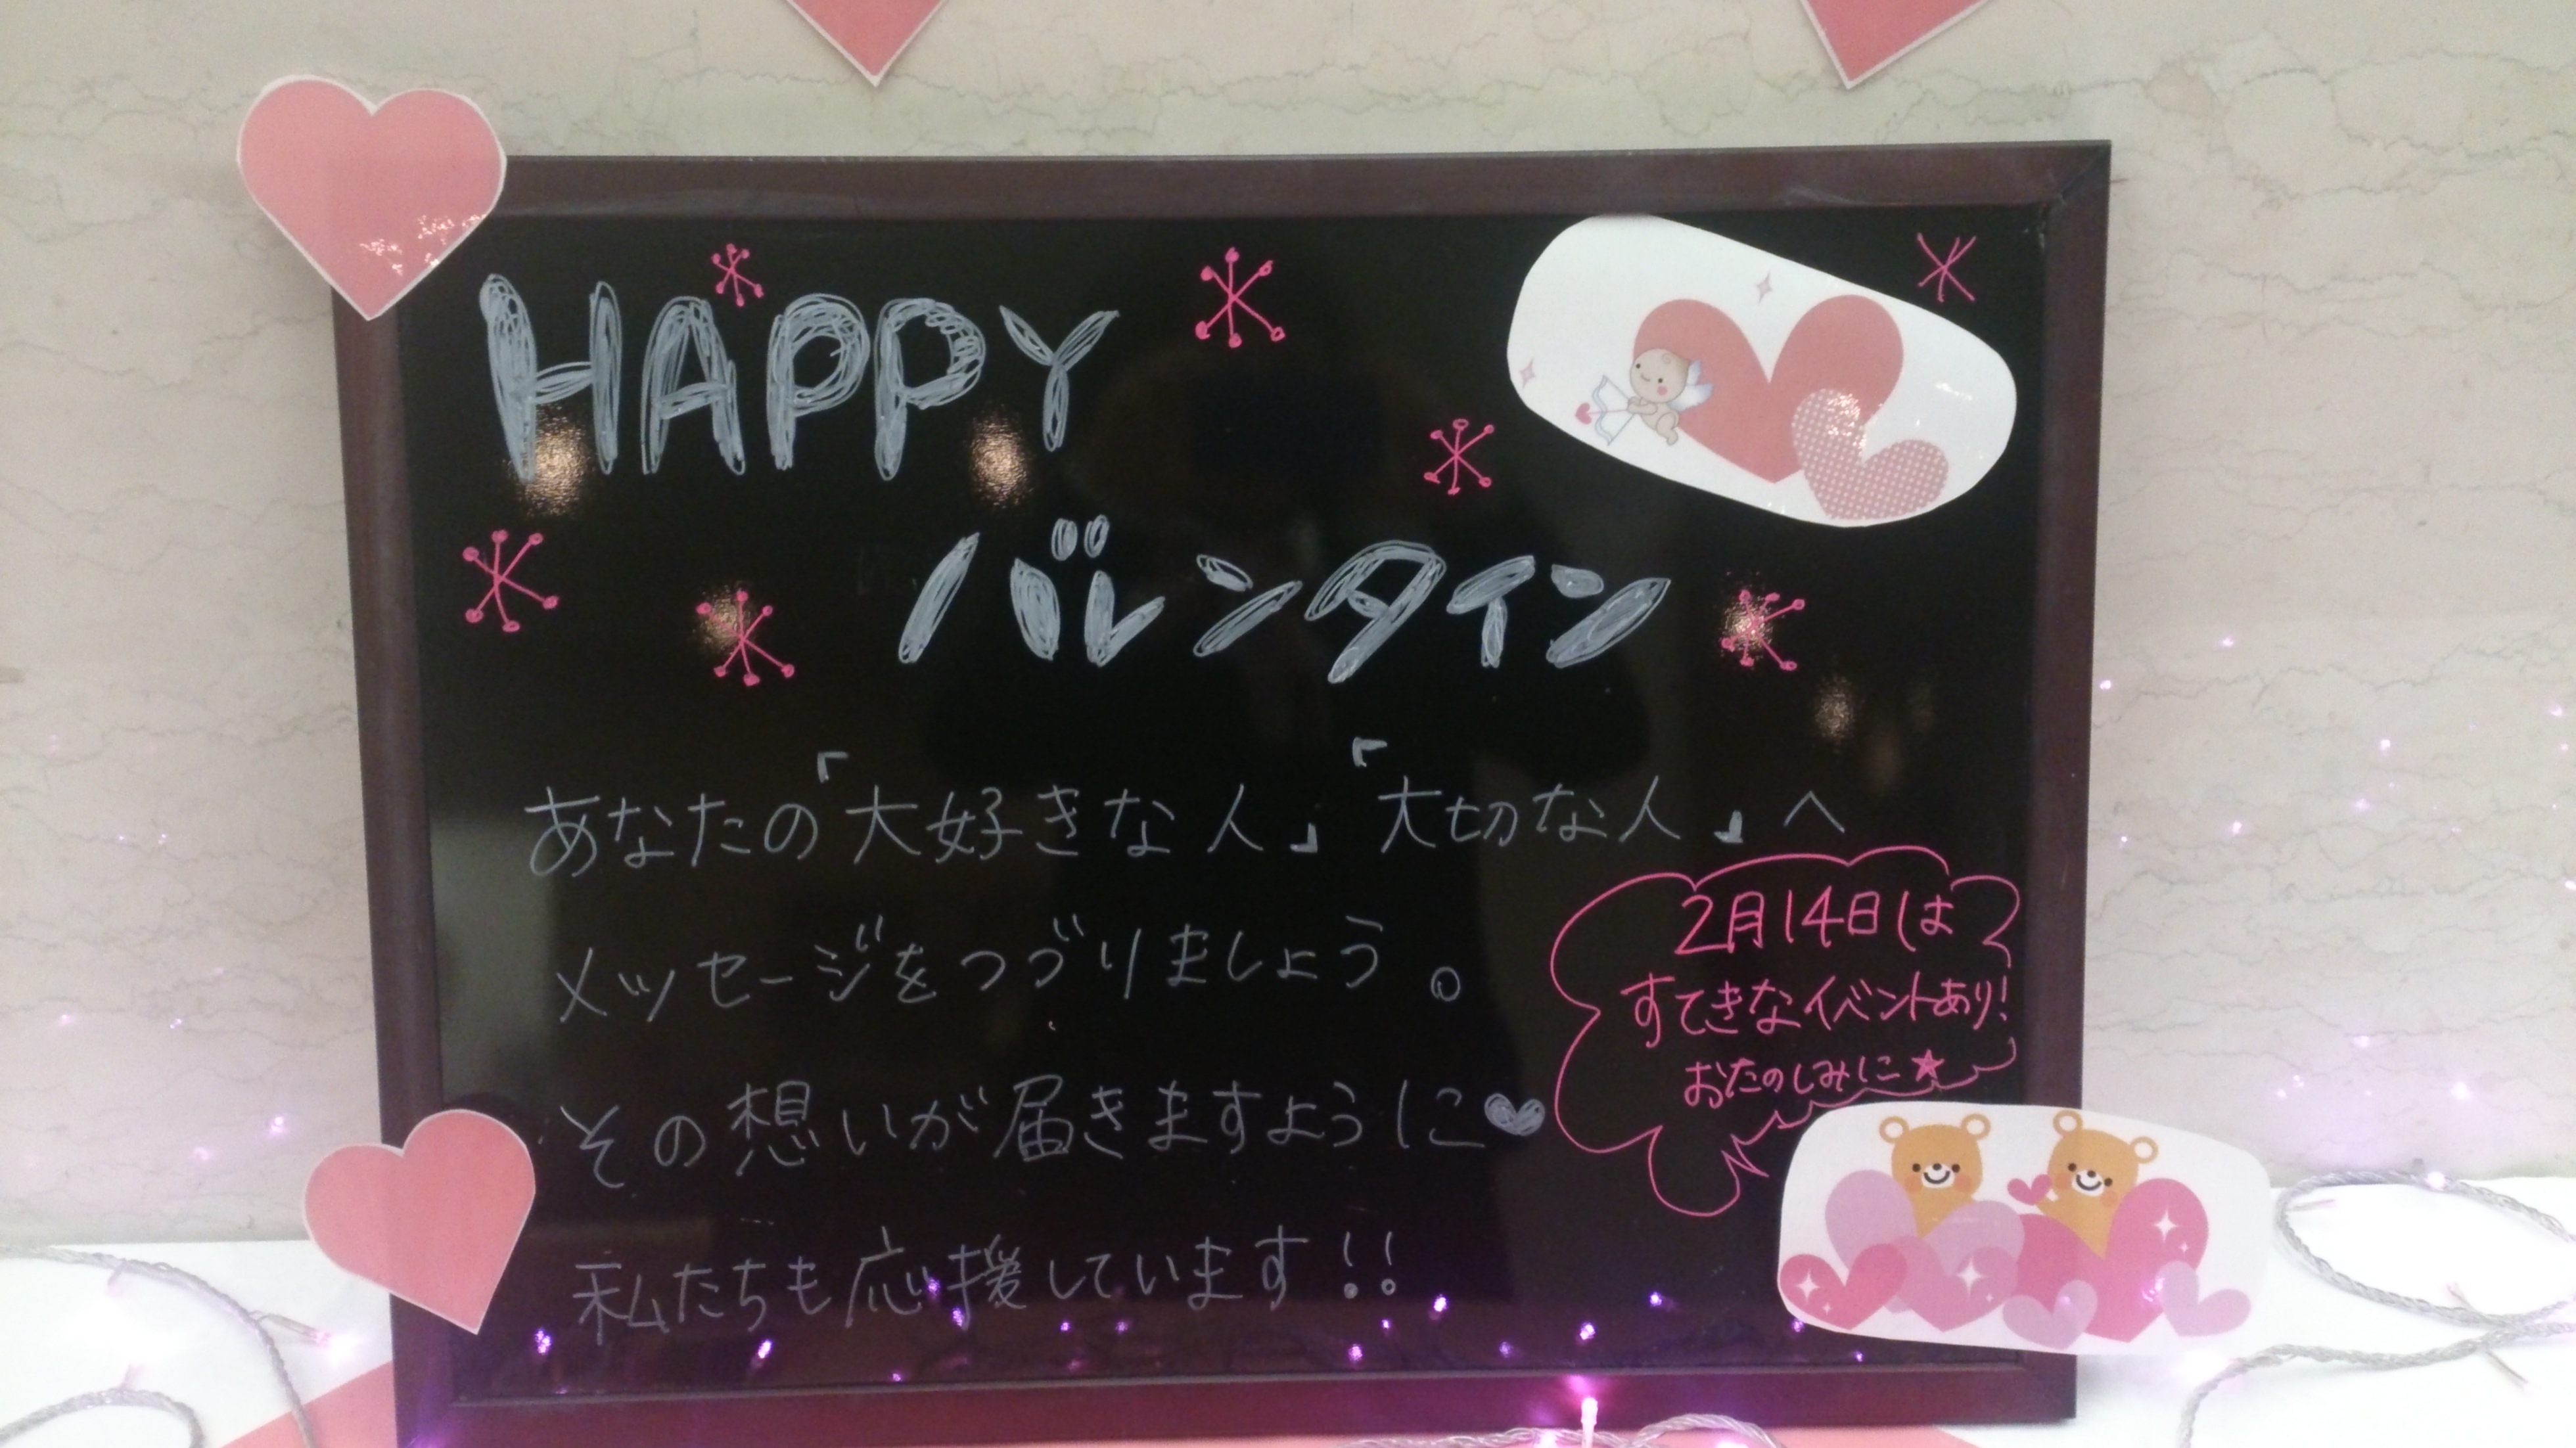 HAPPY
バレンタイン
あなたの「大好きな人」「大切な人」へ
メッセージをつづりましょう。
その想いが届きますように♥
私たちも応援しています!!
2月14日は
すてきなイベントあり!
おたのしみに★